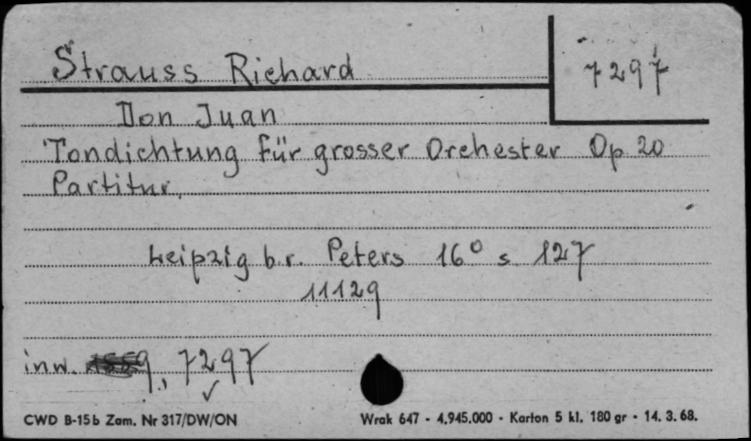 Strauss Richard
7297
Don Juan
Tondichtung für grosser Orchester Op 20
Partitur.
Leipzig b.r. Peters 16° s 127
11129
inw. 7297
CWD B-15b Zam. Nr 317/DW/ON
Wrak 647 - 4.945.000 - Karton 5 kl. 180 gr - 14. 3. 68.